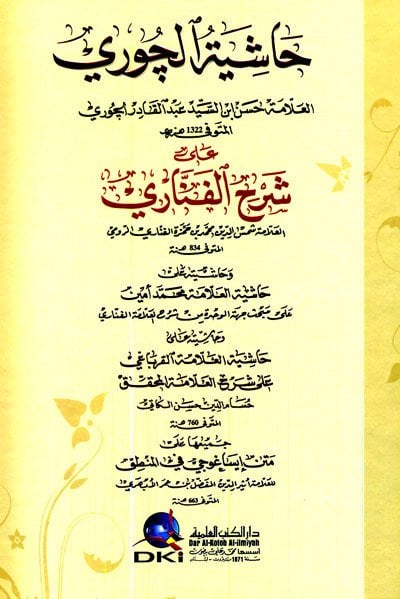 حاشية الچوري
العلامة حسن ابن السيد عبد القادر الچوري
المتوفى 1322 هـ
على
شرح الفناري
العلامة شمس الدين محمد بن حمزة الفناري الرومي
المتوفى 834 هـ
وحاشية على
حاشية العلامة محمد أمين
على مبحث جهة الوحدة من شرح العلامة الفناري
وحاشية على
حاشية العلامة القرباغي
على شرح العلامة المحقق
حسام الدين حسن الكاتي
المتوفى 760 هـ
جميعها على
متن إيساغوجي في المنطق
للعلامة أثير الدين المفضل بن عمر الأبهري
المتوفى 663 هـ
دار الكتب العلمية
Dar Al-Kotob Al-ilmiyah
أسسها محمد علي بيضون
سنة 1971 بيروت - لبنان
DKi